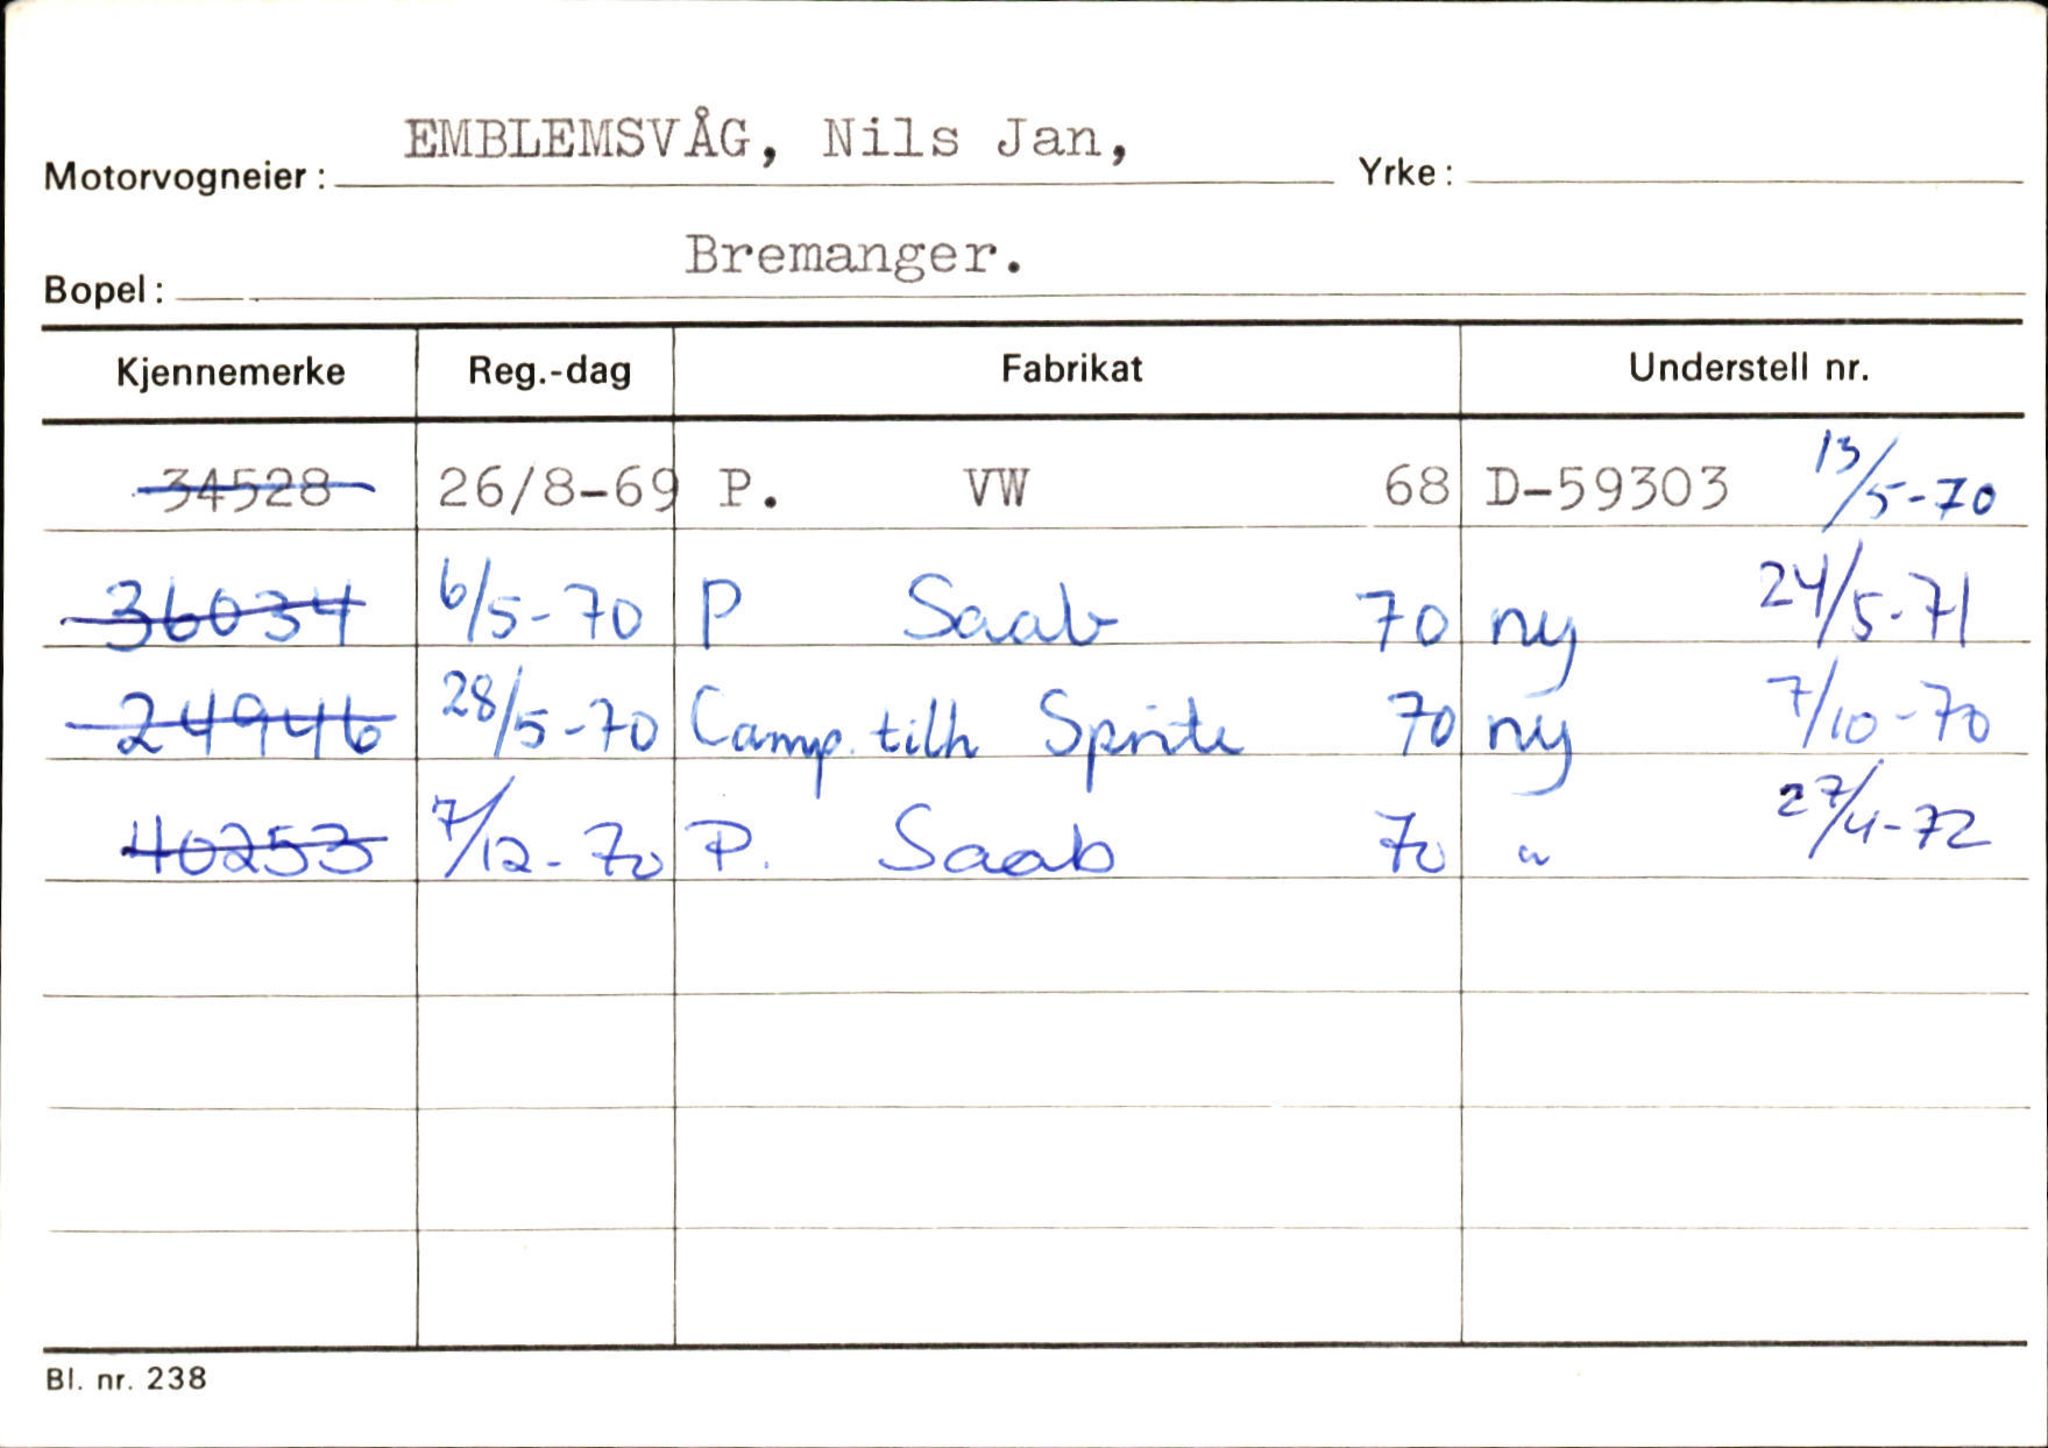 Motorvogneier: EMBLEMSVÅG, Nils Jan, Yrke:
Bopel: Bremanger.
Kjennemerke Reg.-dag Fabrikat Understell nr.
34528 26/8-69 P. VW 68 D-59303 13/5-70
36034 6/5-70 P Saab 70 ny 24/5-71
24946 28/5-70 Camp. tilh Sprite 70 ny 7/10-70
40253 7/12-70 P. Saab 70 " 27/4-72
Bl. nr. 238